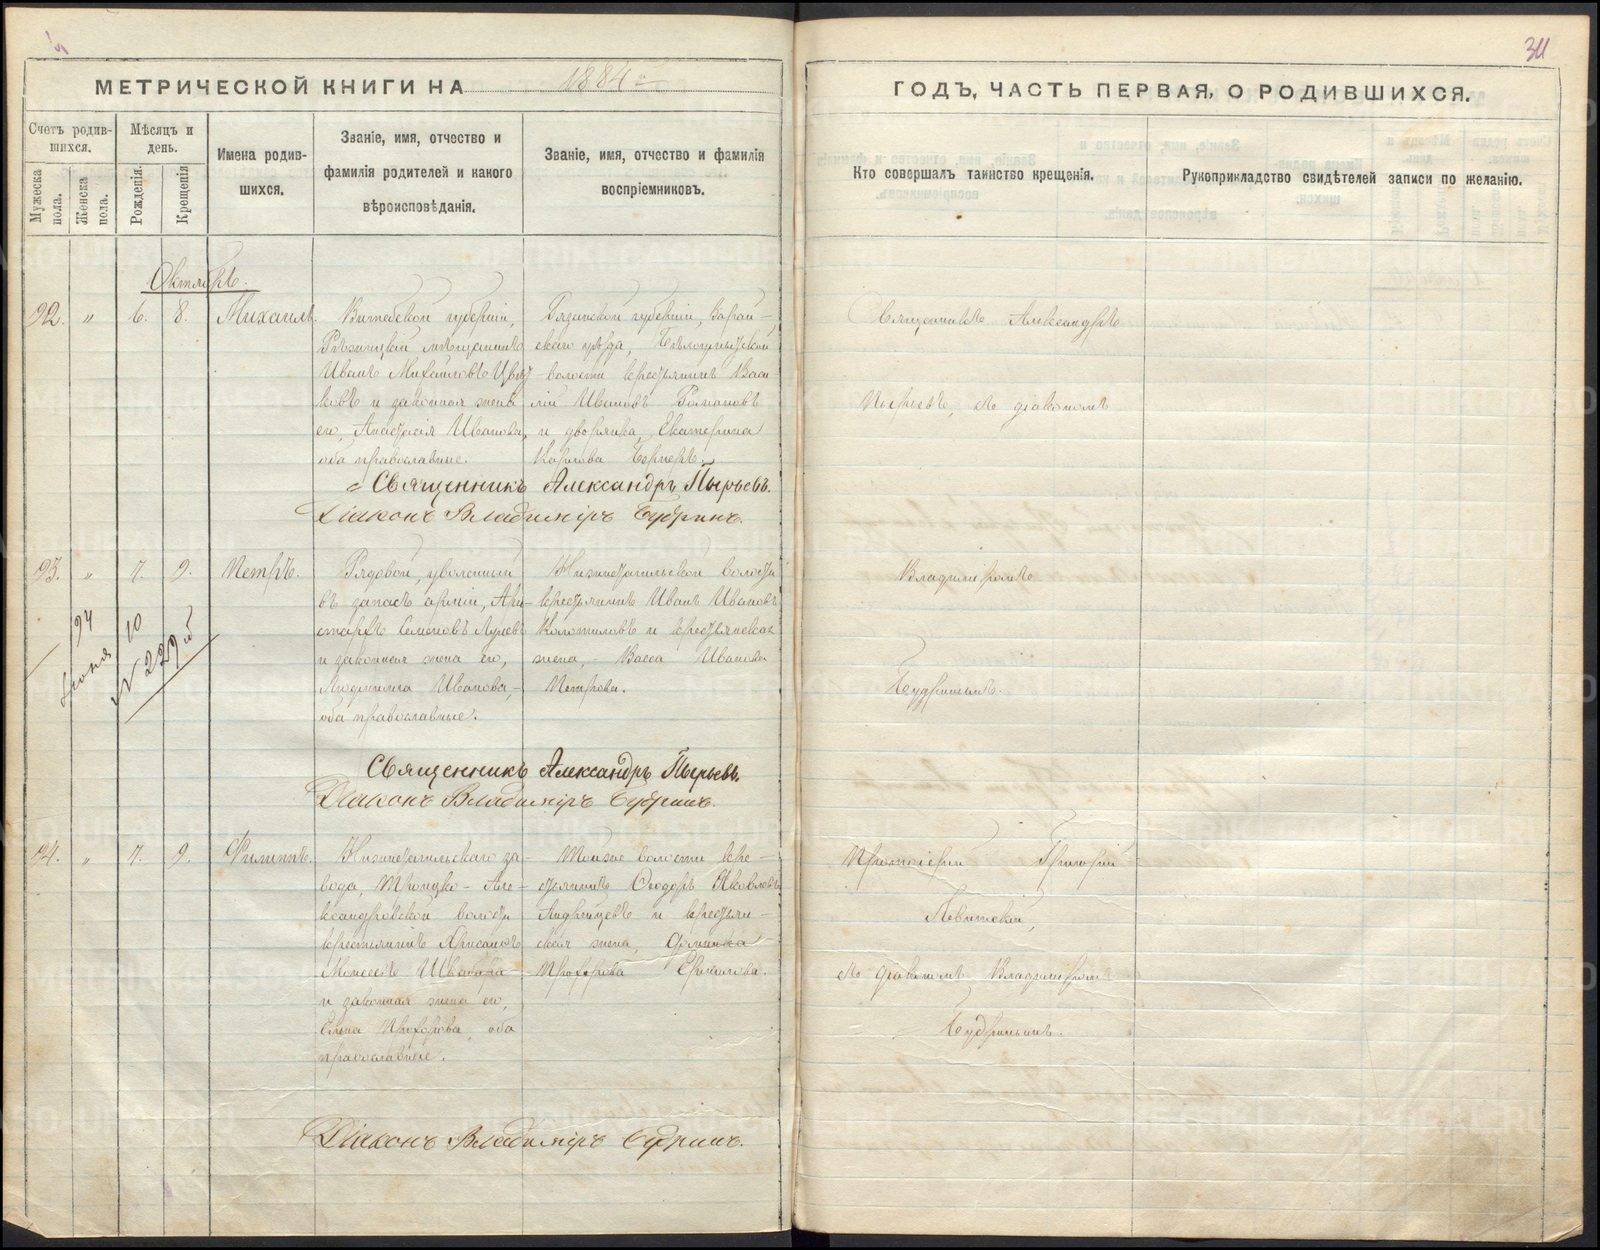 34
МЕТРИЧЕСКОЙ КНИГИ НА 1884 й
ГОДЪ, ЧАСТЬ ПЕРВАЯ, О РОДИВШИХСЯ.
Счетъ родив-
шихся.
Мужеска
пола.
Женска
пола.
Мѣсяцъ и
день.
Рожденія.
Крещенія
Имена родив-
шихся.
Званіе, имя, отчество и
фамилія родителей и какого
вѣроисповѣданія.
Званіе, имя, отчество и фамилія
воспріемниковъ.
Кто совершалъ таинство крещенія.
Рукоприкладство свидѣтелей записи по желанію.
Октябрь.
92. " 6. 8. Михаилъ.
Витебской губерніи,
Рѣжицкій мѣщанинъ
Иванъ Михаиловъ
и законная жена
его, Анастасія Иванова,
оба православные.
Рязанской губерніи, Зарай-
скаго уѣзда,
волости крестьянинъ Васи
лій Ивановъ Романовъ
и дворянка, Екатерина
Карлова
Священникъ Александръ
Пырьевъ, съ діакономъ
Священникъ Александръ Пырьевъ.
Діаконъ Владиміръ Будринъ.
93. " 7. 9. Петръ.
Рядовой, уволенный
въ запасъ арміи, Ари-
стархъ Семеновъ
и законная жена его,
Людмилла Иванова,
оба православные.
Нижнетагильской волости
крестьянинъ Иванъ Ивановъ
Колотиловъ и крестьянская
жена, Васса Иванова
Петрова.
Владиміромъ
Будринымъ.
94
июня 10
№ 229
Священникъ Александръ Пырьевъ.
Діаконъ Владиміръ Будринъ.
94. " 7. 9. Филиппъ.
Нижнетагильскаго за-
вода, Троицко-Але-
ксандровской волости
крестьянинъ Хрисанфъ
Моисеевъ
и законная жена его,
Елена Прохорова, оба
православные.
Тойже волости кре-
стьянинъ Ѳеодоръ Яковлевъ
и крестьян-
ская жена,
Прохорова Ермилова.
Протоіерей Григорій
Левитскій,
съ діакономъ Владиміромъ
Будринымъ.
Діаконъ Владиміръ Будринъ.